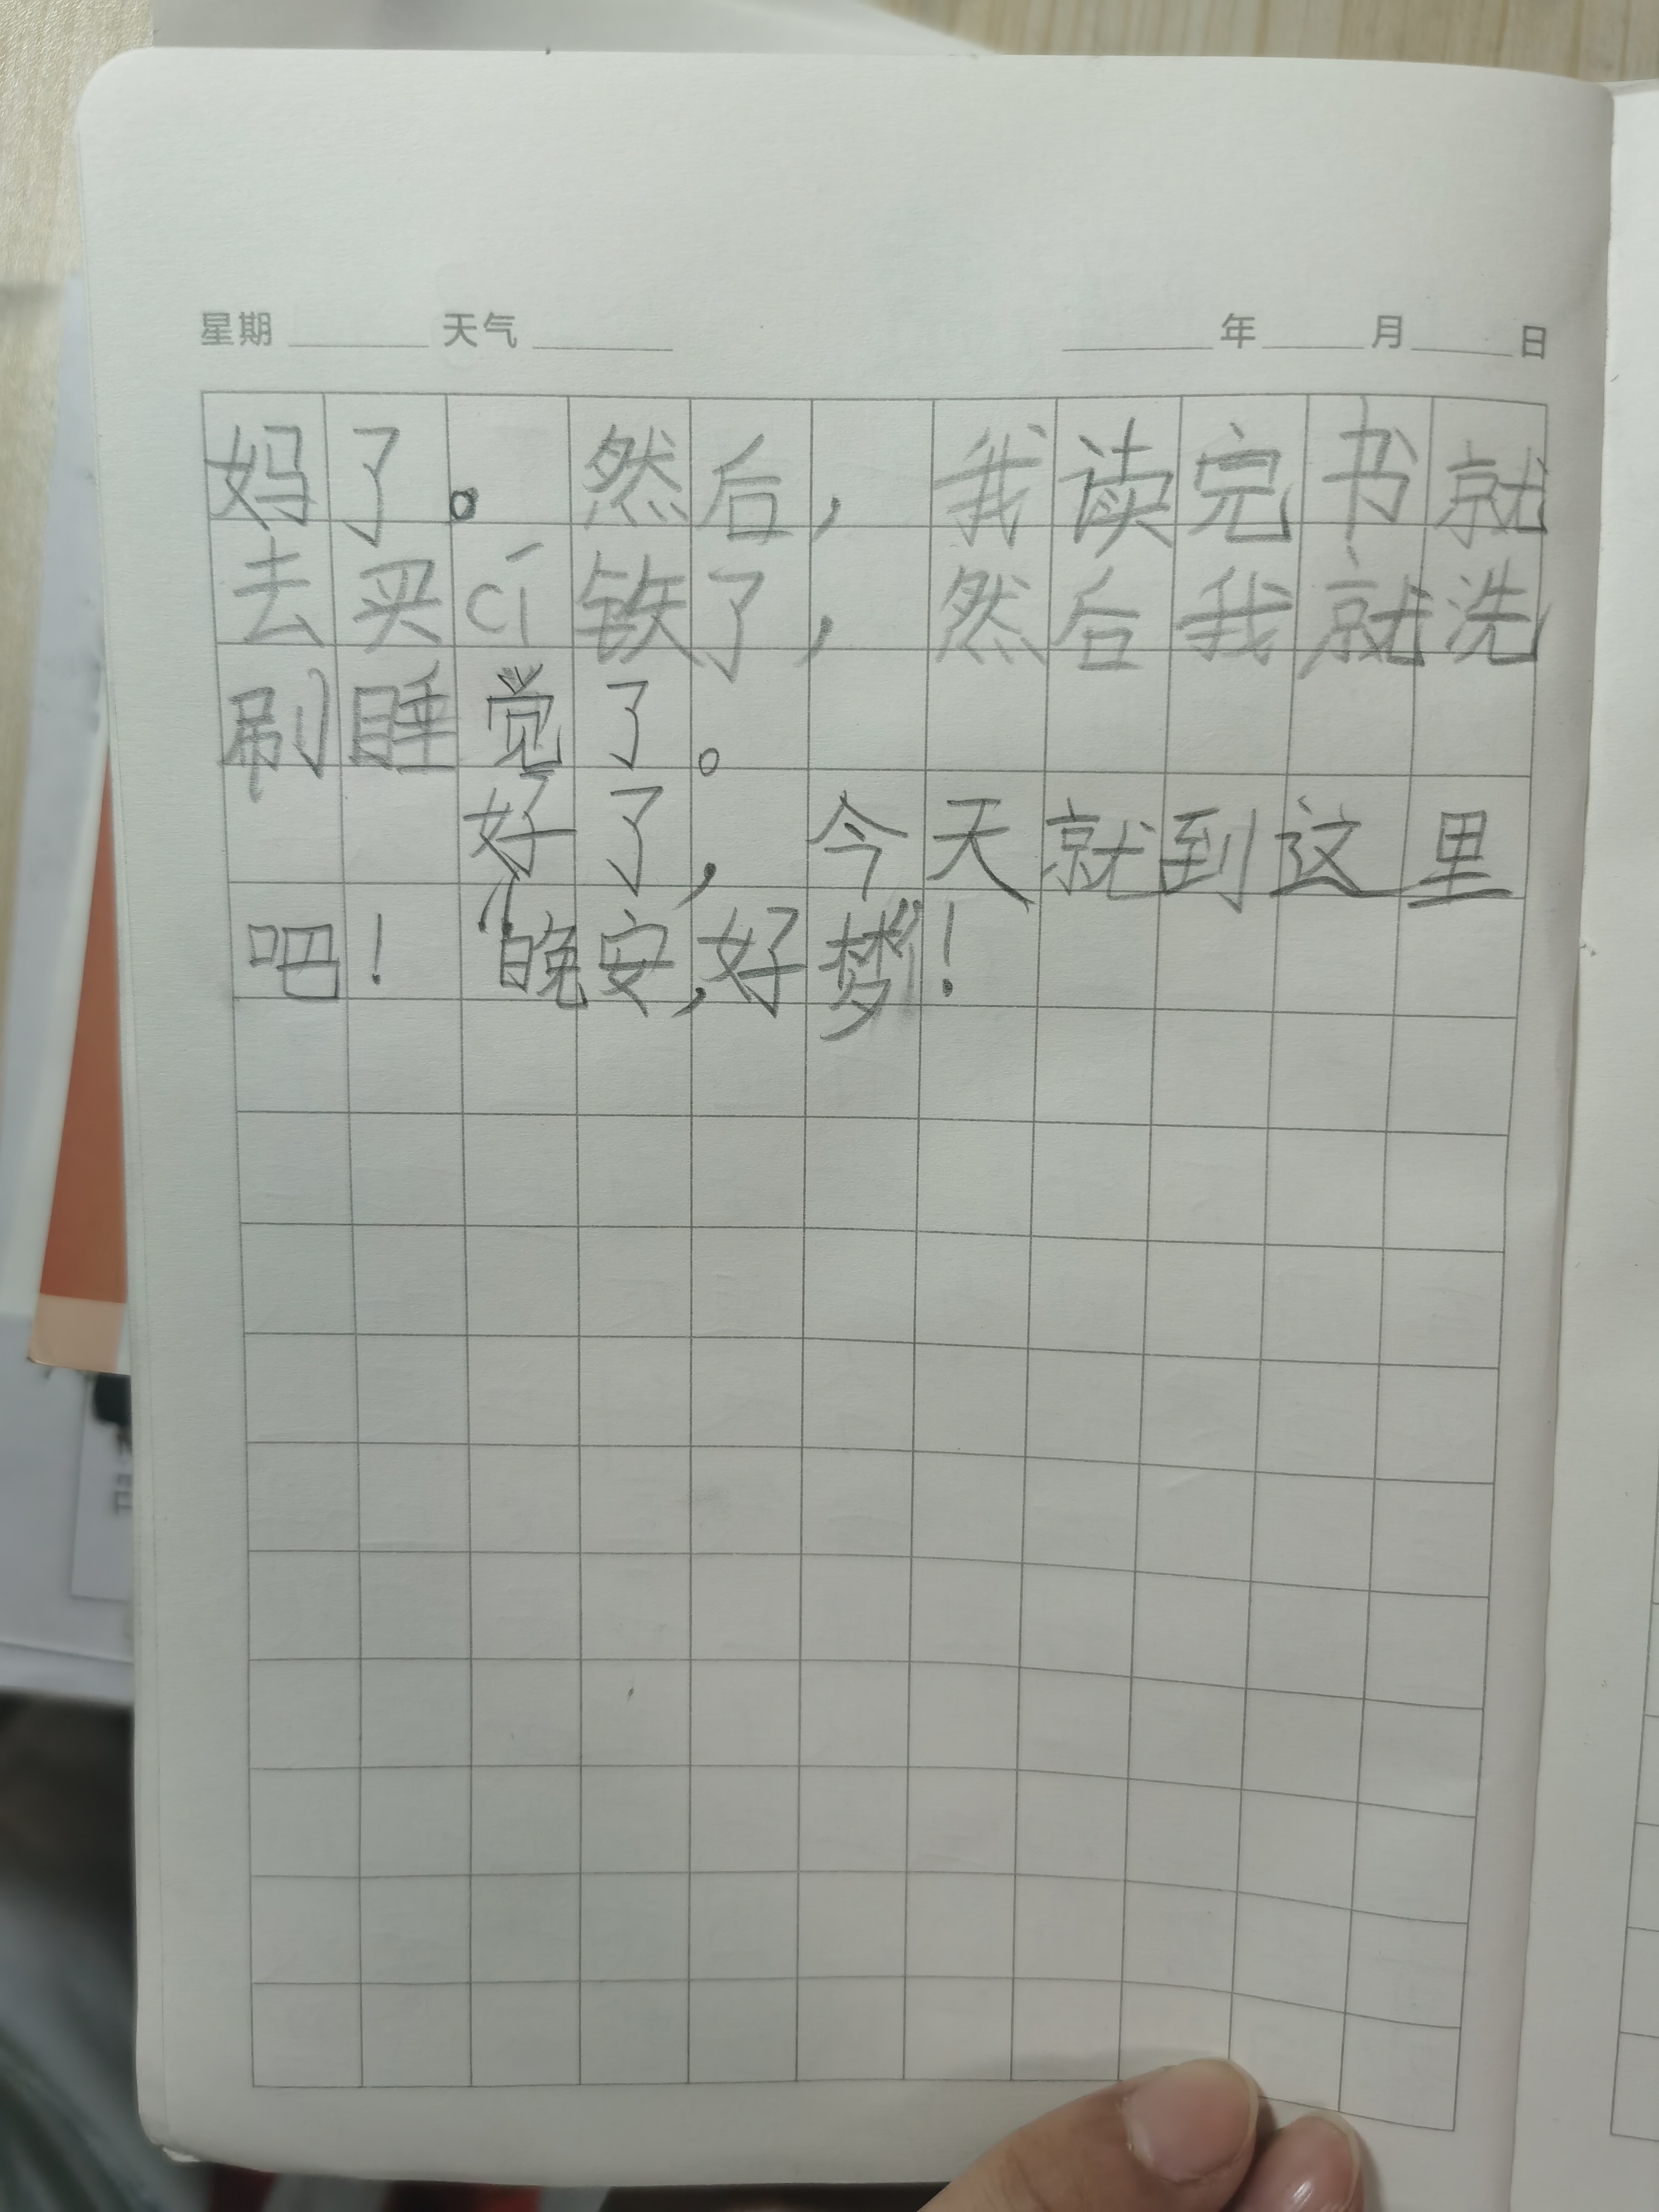 星期 天气 年 月 日
妈了。然后，我读完书就
去买cí铁了，然后我就洗
刷睡觉了。
好了，今天就到这里
吧！“晚安，好梦”！